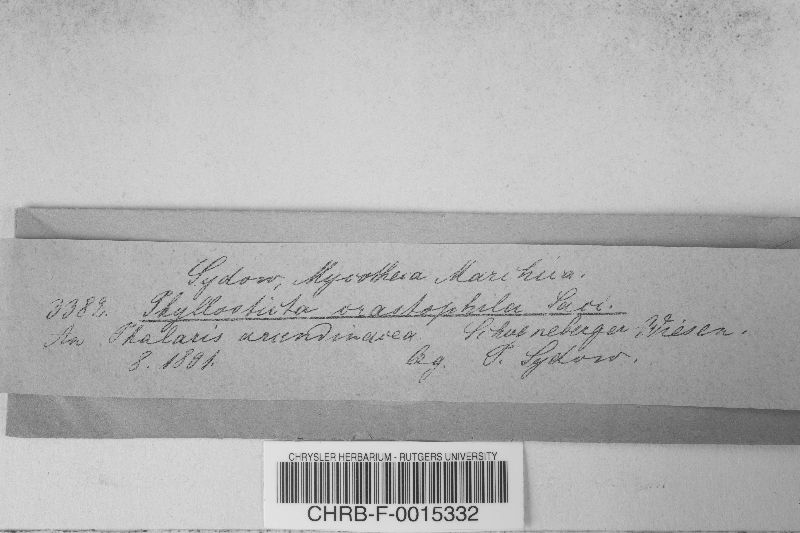 Sydow, Mycotheca Marchica.
3389. Phyllosticta orastophila Sacc.
An Phalaris arundinacea Schoeneberger Wiesen.
8. 1891. lg. P. Sydow.
CHRYSLER HERBARIUM - RUTGERS UNIVERSITY
CHRB-F-0015332